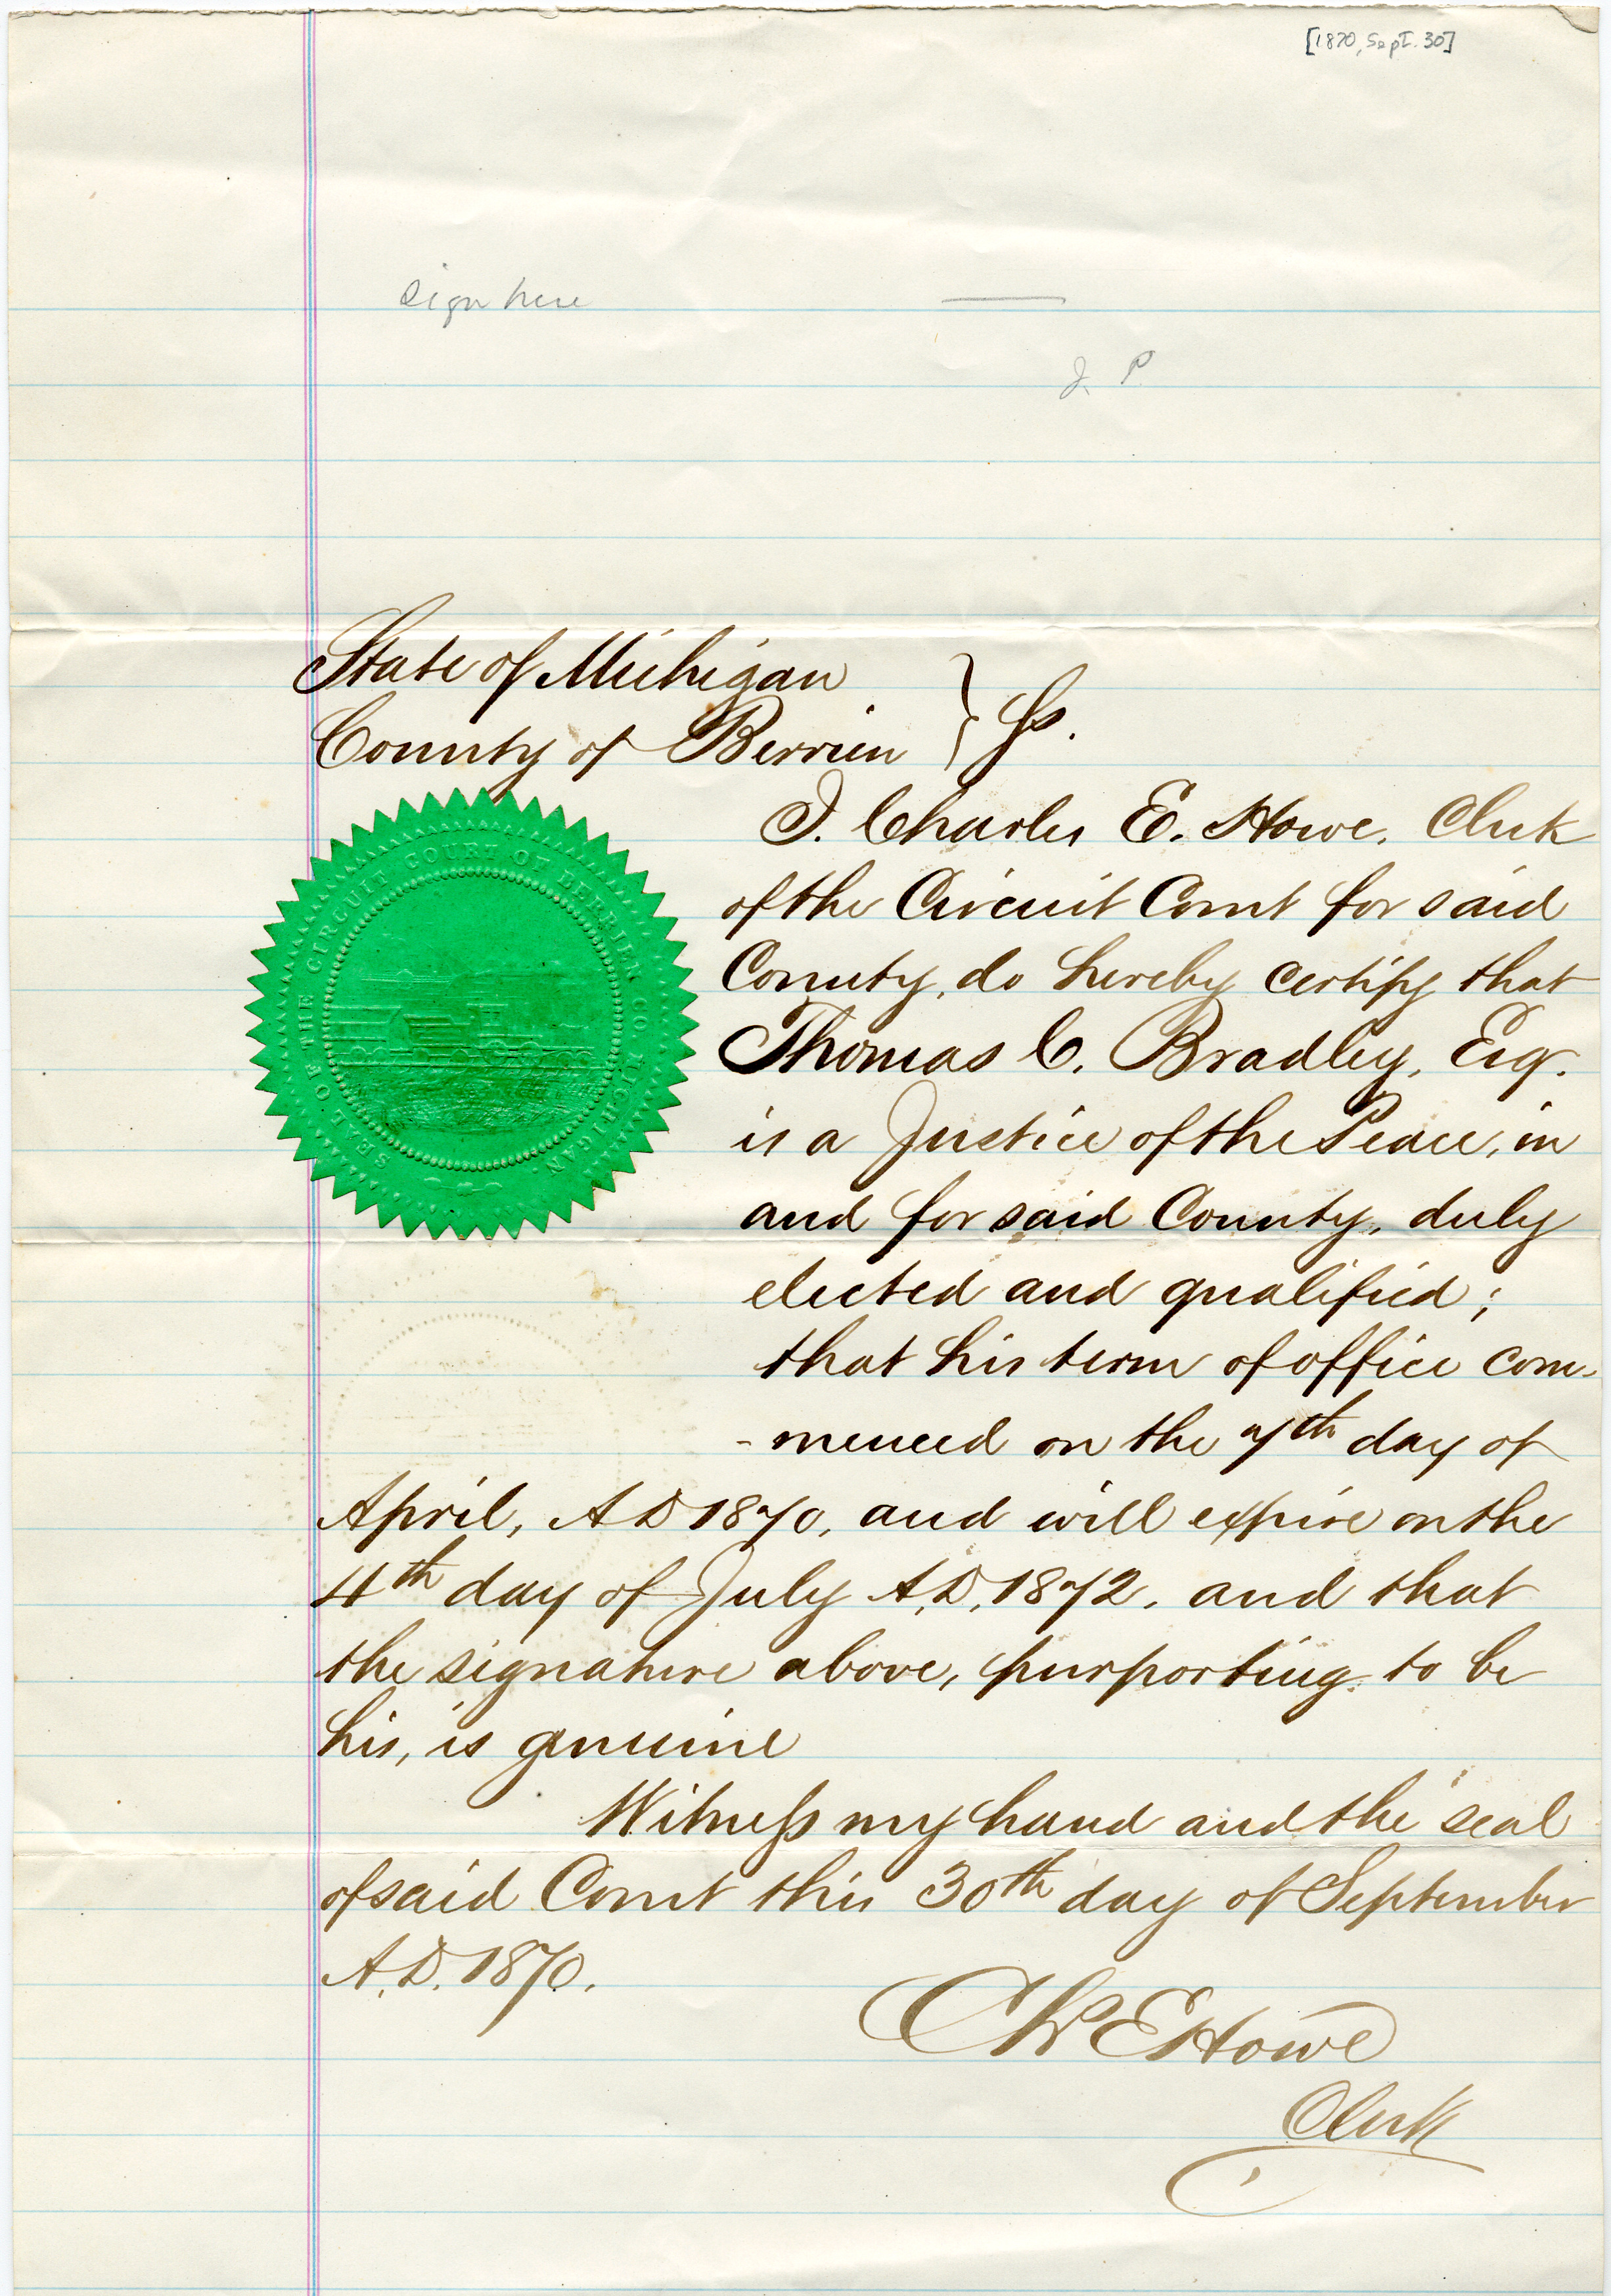 [1870, Sept. 30]
Sign here
J. P
State of Michigan
County of Berrien } Ss.
I. Charles E. Howe. Clerk
of the Circuit Court for said
County, do hereby certify that
Thomas C. Bradley, Esq.
is a Justice of the Peace, in
and for said County, duly
elected and qualified;
that his term of office com-
-menced on the 7th day of
April, A D 1870, and will expire on the
4th day of July A.D. 1872. and that
the signature above, purporting to be
his, is genuine
Witness my hand and the seal
of said Court this 30th day of September
A.D. 1870.
Chs E Howe
Clerk
SEAL OF THE CIRCUIT COURT OF BERRIEN CO. MICHIGAN.